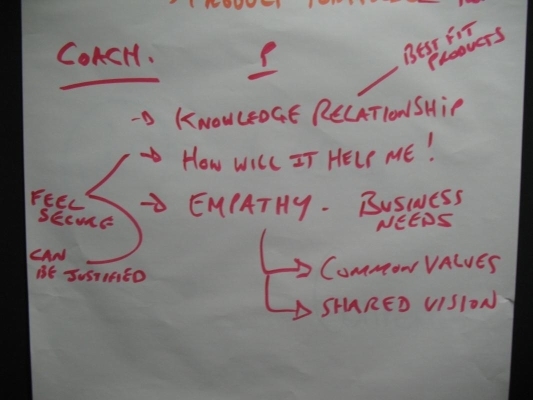 PRODUCT
COACH. P
BEST FIT
PRODUCTS
→ KNOWLEDGE RELATIONSHIP
→ HOW WILL IT HELP ME!
FEEL
SECURE
→ EMPATHY. BUSINESS
NEEDS
CAN
BE JUSTIFIED
→ COMMON VALUES
→ SHARED VISION